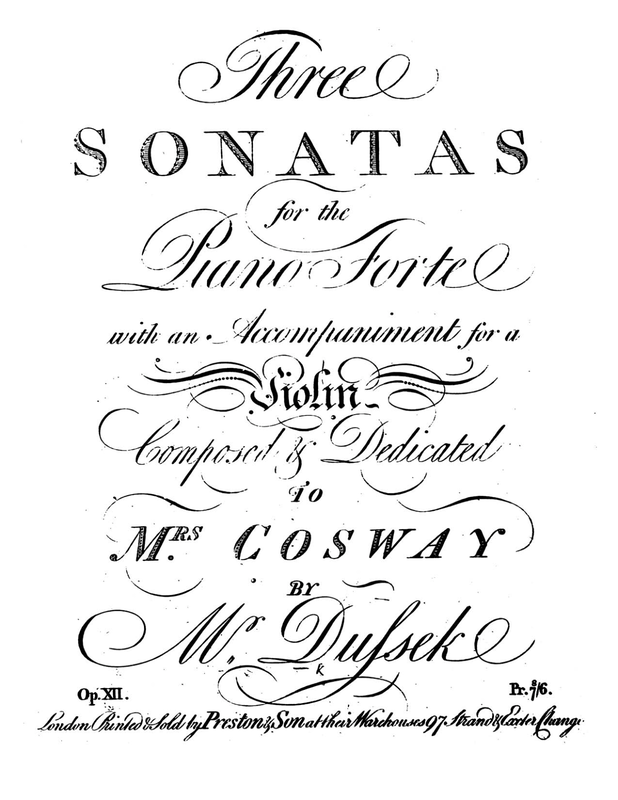 Three
SONATAS
for the
Piano Forte
with an Accompaniment for a
Violin
Composed & Dedicated
TO
Mrs COSWAY
BY
Mr. Dussek
Op. XII. Pr. 7/6.
London Printed & Sold by Preston & Son at their Warehouses 97 Strand & Exeter Change